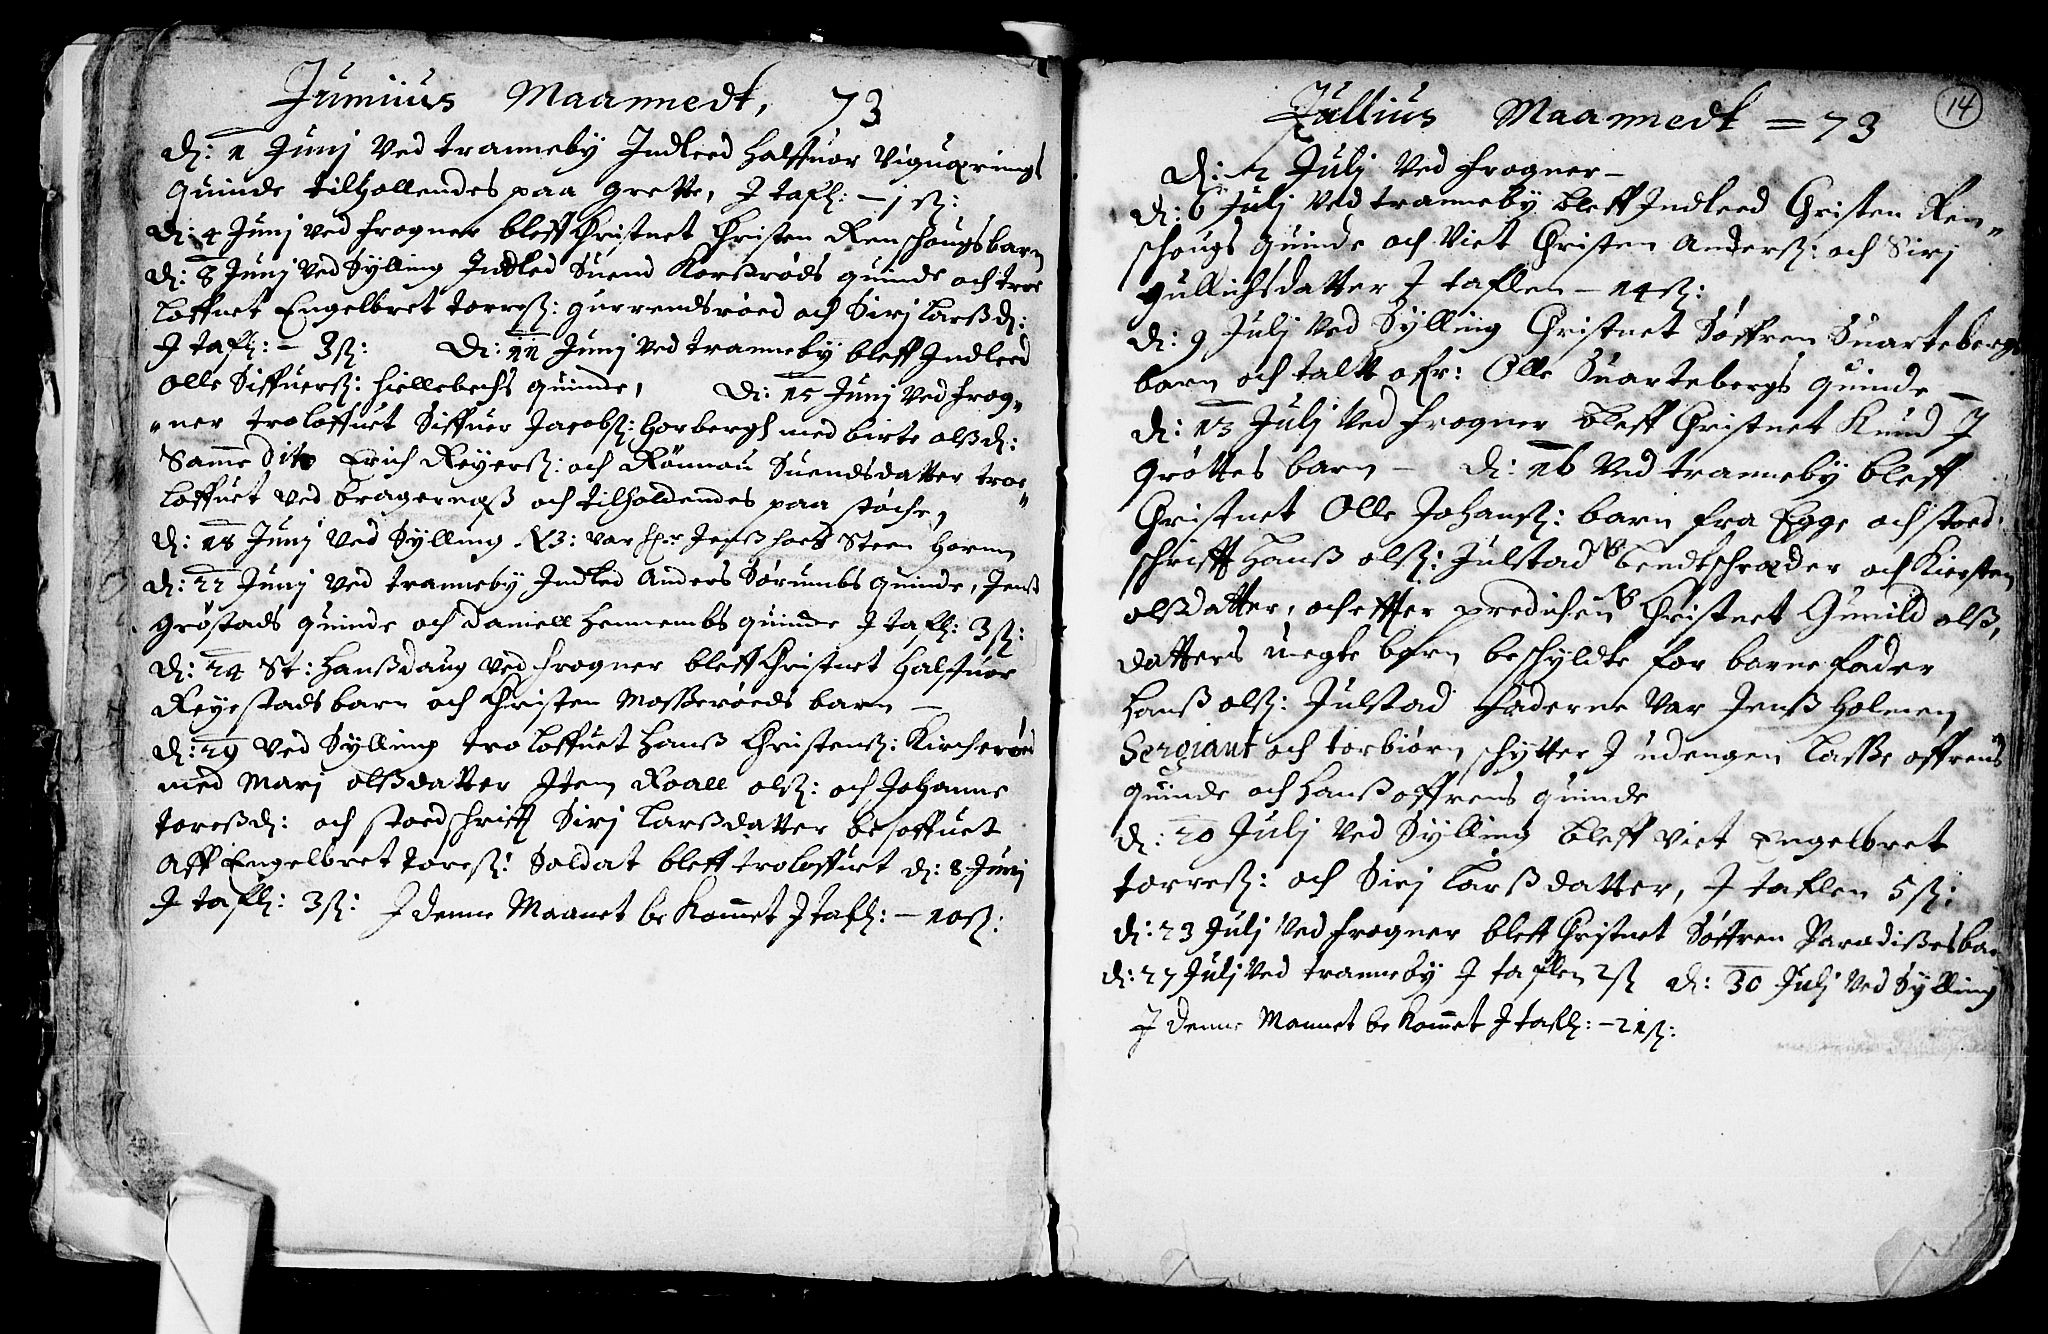 Junnius Maannedt, 73
d: 1 Junj Ved tranneby Indleed Halffuor Viguærings
quinde tilhollendes paa Grette, J tafl: – j ß:
d: 4 Junj ved frogner bleff Christnet Christen Renschougs barn
d: 8 Junj Ved Sylling Indled Suend Korßrøds quinde och troe
loffuet Engelbret torreß: gurrendsrøed och Sirj Larßd:
J tafl: – 3ß: d: 11 Junj Ved tranneby bleff Indleed
Olle Siffuerß: hiellebechs quinde, d: 15 Junj Ved frog„
„ner troloffuet Siffuer Jacobß: Horbergh med birte olßd:
Samme Dito Erich Reyerß: och Rønnou Suendsdatter troe„
loffuet ved bragernæß och tilholdendes paa støche,
d: 18 Junj Ved Sylling Steen
d: 22 Junj Ved tranneby Indled Anders Sørumbs quinde, Jens
Grøstads quinde och Daniell Hennembs quinde J tafl: 3ß:
d: 24 St: Hanßdaug ved frogner bleff Christnet Halffuor
Reyestads barn och Christen Moßerøeds barn –
d: 29 Ved Sylling troloffuet Hanß Christenß: Kircherøed
med Marj olßdatter Jtem Roall olß: och Johanne
toreßd: och stoed schrifft Sirj Larßdatter besoffuet
Aff Engelbret toreß: Soldat bleff troloffuet d: 8 Junj
J tafl: 3ß: J denne Maanet bekommet J tafl: – 10ß:
14
Jullius Maannedt = 73
d: 2 Julj Ved frogner –
d: 6 Julj Ved tranneby bleff Indleed Christen Ren„
schougs quinde och Viet Christen Anderß: och Sirj
gullichsdatter J taflen – 14ß:
d: 9 Julj Ved Sylling Christnet Søffren Suartebergs
barn och taltt ofr: Olle Suartebergs quinde –
d: 13 Julj Ved frogner bleff Christnet Knud J
Grøttes barn – d: 16 Ved tranneby bleff
Christnet Olle Johanß: barn fra Egge och stoed
schrifft Hanß olß: Julstad bendtschræder och Kiersten
olßdatter, och effter predichen Christnet Gunild olß,
datters uegte børn beschyldte for barne fader
Hanß olß: Julstad faderne var Jenß Holmen
Sergiant och torbiørn schytter J udengen Laße offrens
quinde och Hanß offrens quinde
d: 20 Julj Ved Sylling bleff viet Engelbret
torreß: och Sirj Larßdatter, J taflen 5ß:
d: 23 Julj Ved frogner bleff Christnet Søffren Paradißes bar
d: 27 Julj Ved tranneby J taflen 2ß d: 30 Julj Ved Sylling
J denne Mannet bekommet J tafl: – 21ß: